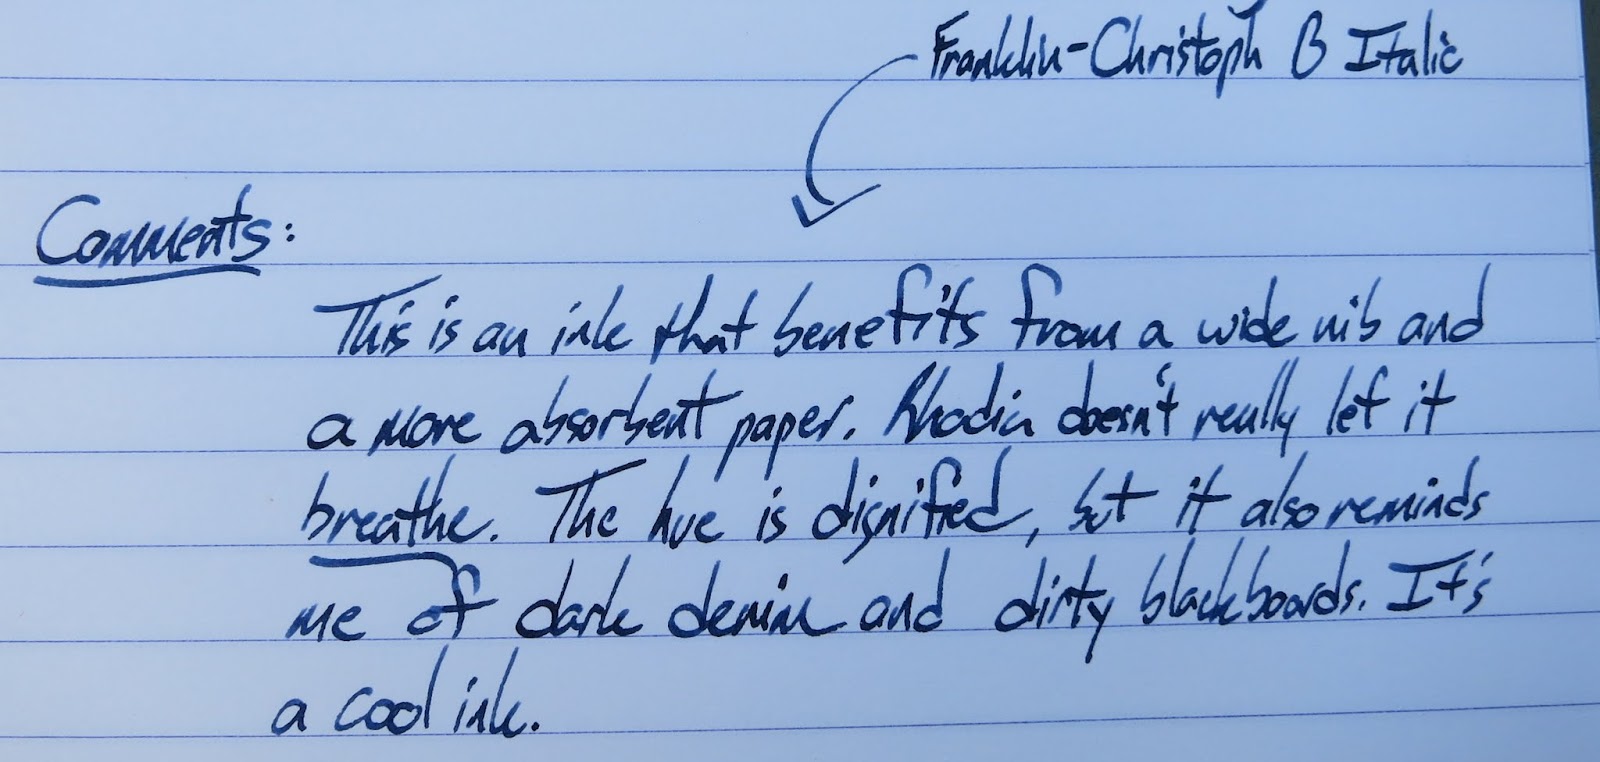 Franklin-Christoph B Italic
Comments:
This is an ink that benefits from a wide nib and
a more absorbent paper. Rhodia doesn't really let it
breathe. The hue is dignified, but it also reminds
me of dark denim and dirty blackboards. It's
a cool ink.